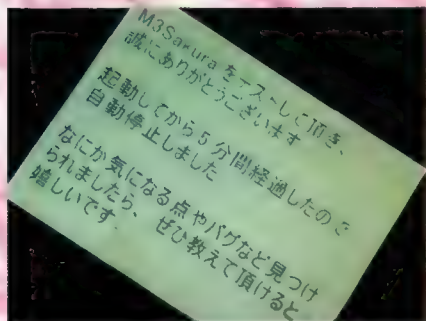 M3Sakura をテストして頂き、
誠にありがとうございます
起動してから5分間経過したので
自動停止しました
なにか気になる点やバグなど見つけ
られましたら、ぜひ教えて頂けると
嬉しいです.